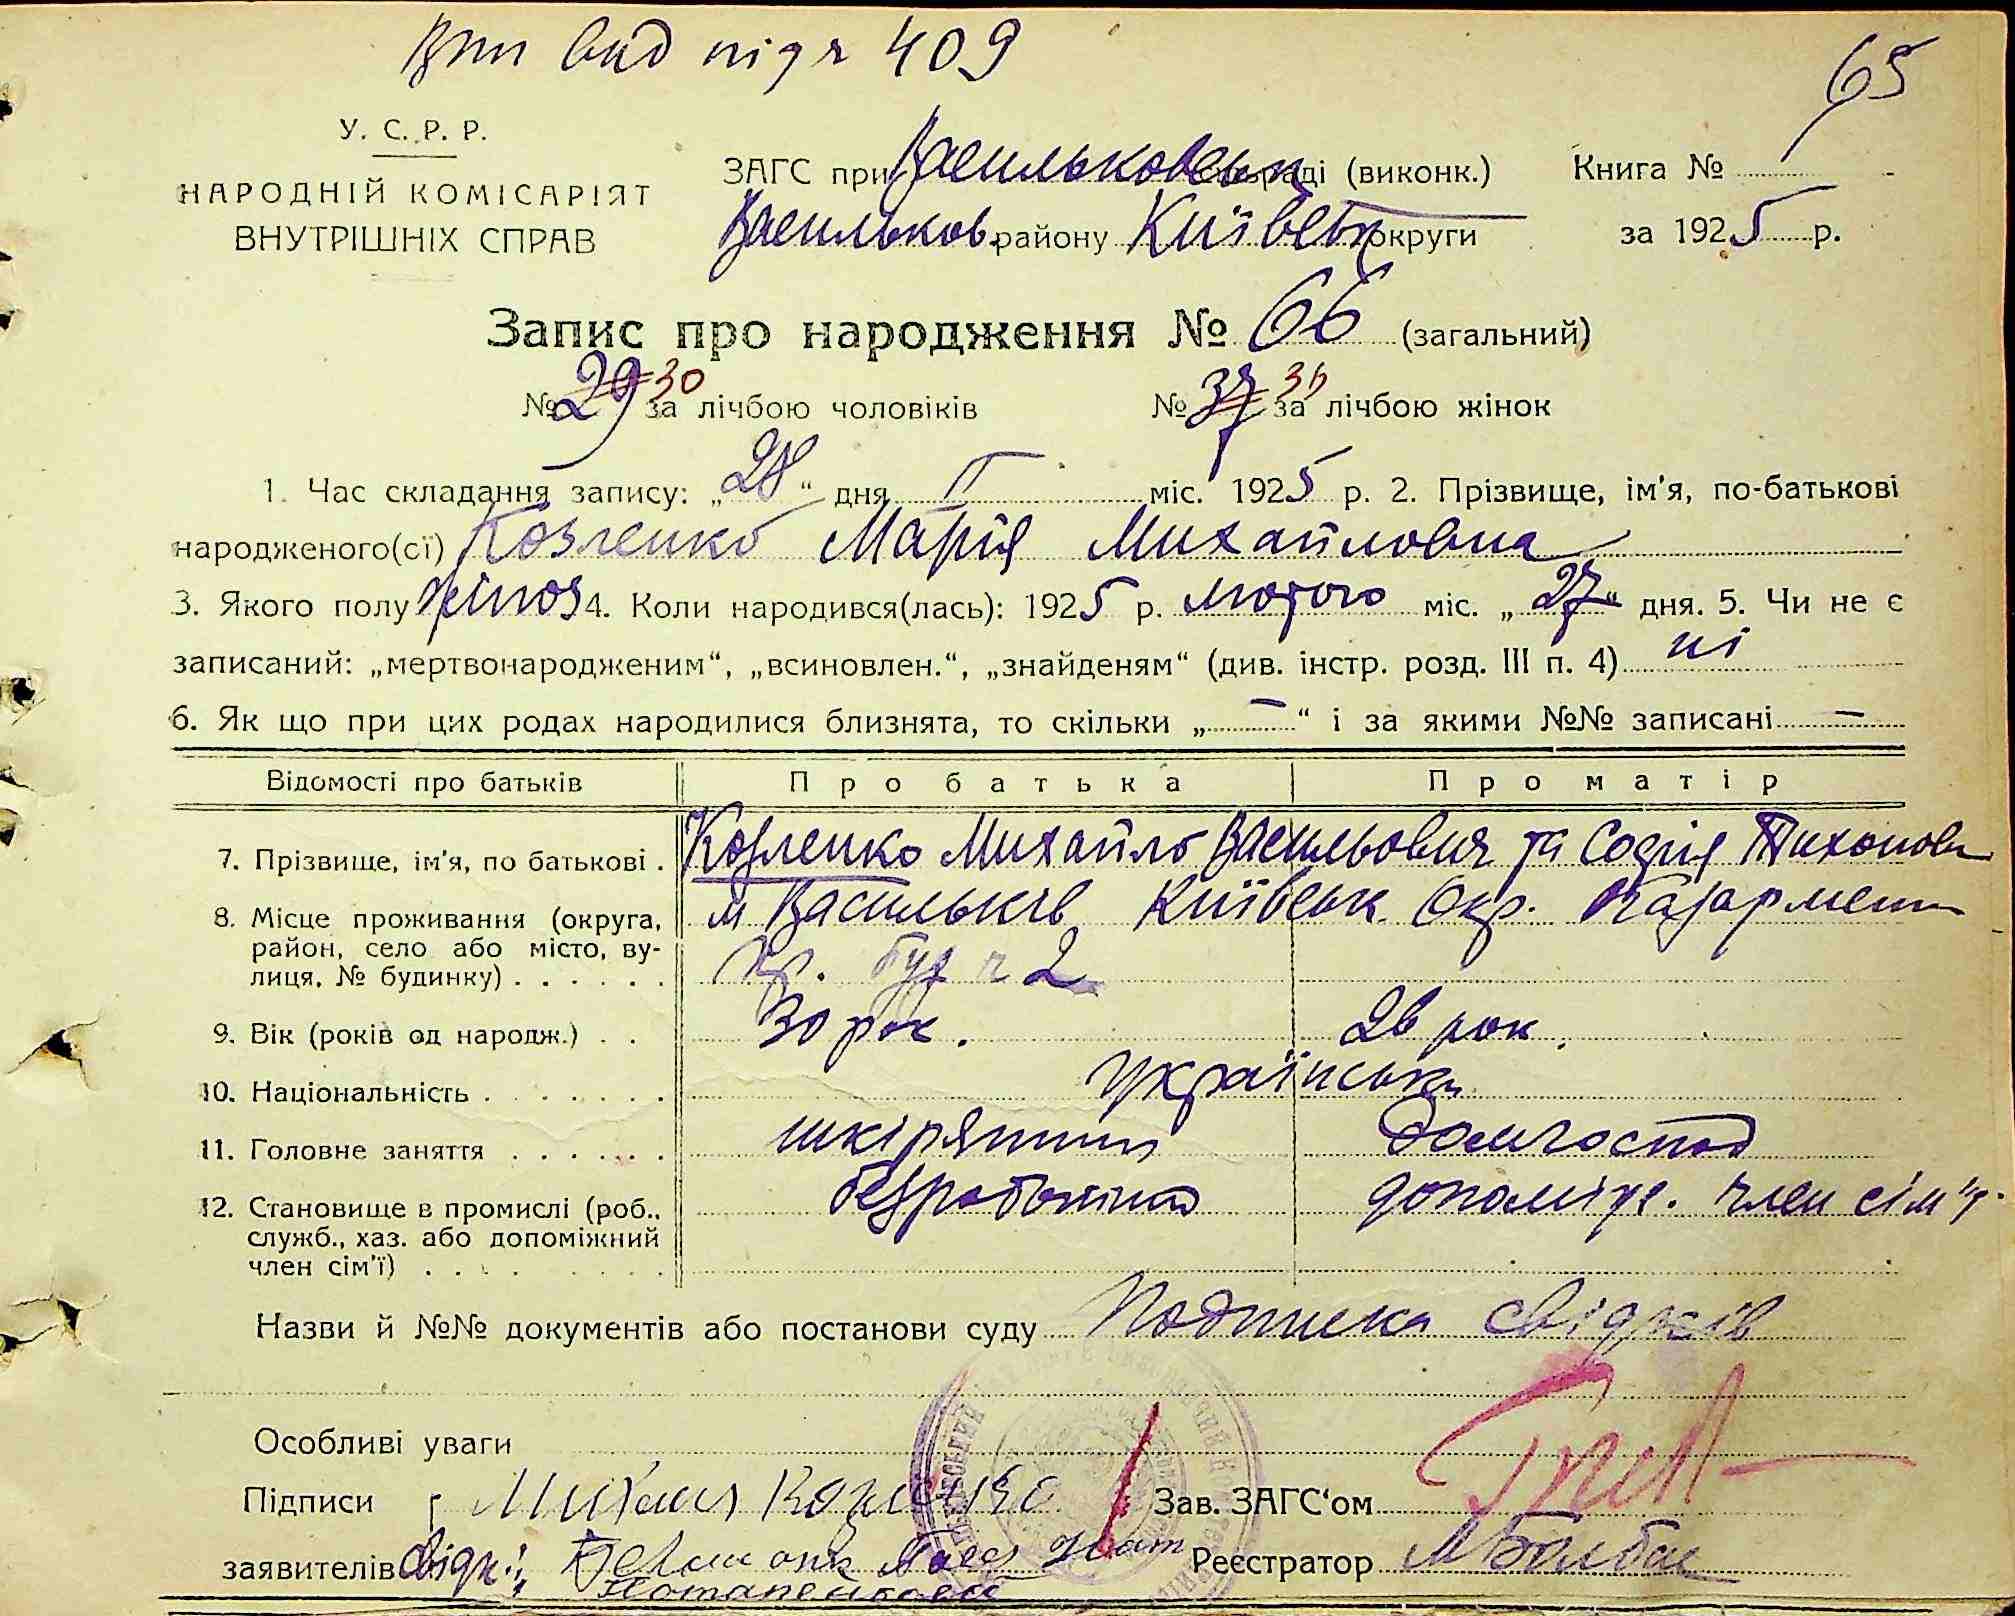 409
65
У. С. Р. Р.
НАРОДНІЙ КОМІСАРІЯТ
ВНУТРІШНІХ СПРАВ
ЗАГС при Васильковськ раді (виконк.) Книга №
Васильков. району Київськ округи за 1925 р.
Запис про народження № 66 (загальний)
№ 29 30 за лічбою чоловіків № 37 36 за лічбою жінок
1. Час складання запису: „28“ дня II міс. 1925 р. 2. Прізвище, ім'я, по-батькові
народженого(сї) Козленко Марія Михайловна
3. Якого полу жіноч 4. Коли народився(лась): 1925 р. лютого міс. „27“ дня. 5. Чи не є
записаний: „мертвонародженим“, „всиновлен.“, „знайденям“ (див. інстр. розд. III п. 4) ні
6. Як що при цих родах народилися близнята, то скільки „—“ і за якими №№ записані —
Відомості про батьків Про батька Про матір
7. Прізвище, ім'я, по батькові . Козленко Михайло Васильович та Софія Тихонов
8. Місце проживання (округа, м Васильків Київськ. Окр.
район, село або місто, ву-
лиця, № будинку) . . . . . . буд ч 2
9. Вік (років од народж.) . . 30 рок. 26 рок.
10. Національність . . . . . . . українськ
11. Головне заняття . . . . . . шкіряник домгоспод
12. Становище в промислі (роб., безробітний допоміж. член сім'ї
служб., хаз. або допоміжний
член сім'ї) . . . .
Назви й №№ документів або постанови суду Подписка свідків
Особливі уваги
Підписи Михаил Козленко Зав. ЗАГС'ом
заявителів Свідк: Реєстратор